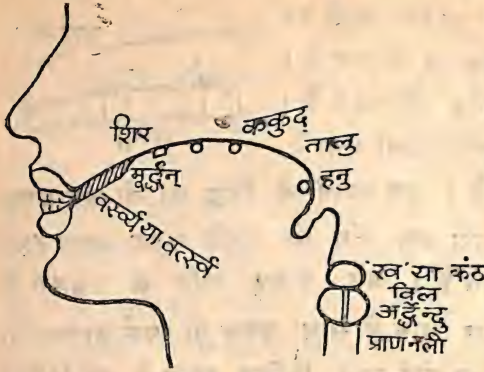 शिर
ककुद्
तालु
मूर्द्धन्
हनु
वर्स्व्य या वर्त्स्व
'ख' या कंठ
विल
अर्द्धेन्दु
प्राणनली